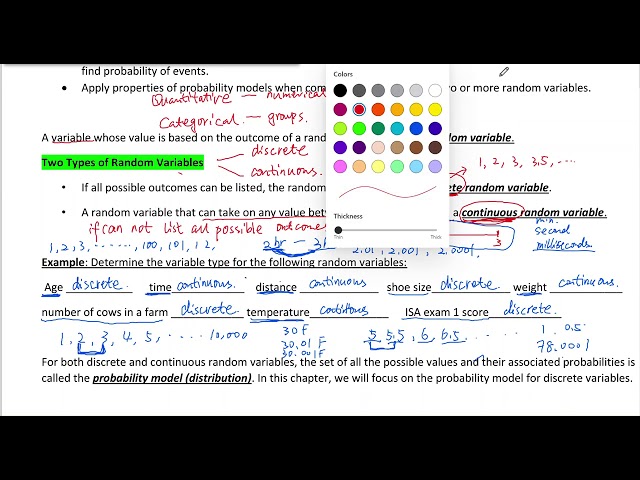 find probability of events.
• Apply properties of probability models when con wo or more random variables.
Quantitative — numerical
Categorical — groups.
A variable whose value is based on the outcome of a rand dom variable.
discrete
Two Types of Random Variables
continuous.
1, 2, 3, 3.5, ....
• If all possible outcomes can be listed, the random ete random variable.
• A random variable that can take on any value betw a continuous random variable.
if can not list all possible outcomes
min.
second
milliseconds
1, 2, 3, ......, 100, 101, 12,
2hr — 3h
2.01, 2.001, 2.0001,
3
Example: Determine the variable type for the following random variables:
Age discrete. time continuous. distance continuous shoe size discrete. weight continuous.
number of cows in a farm discrete temperature continuous ISA exam 1 score discrete.
1, 2, 3, 4, 5, ..... 10,000
30 F
30.01 F
30.001 F
5, 5.5, 6, 6.5 ......
1. 0.5
78.0001
For both discrete and continuous random variables, the set of all the possible values and their associated probabilities is
called the probability model (distribution). In this chapter, we will focus on the probability model for discrete variables.
Colors
Thickness
Thin Thick